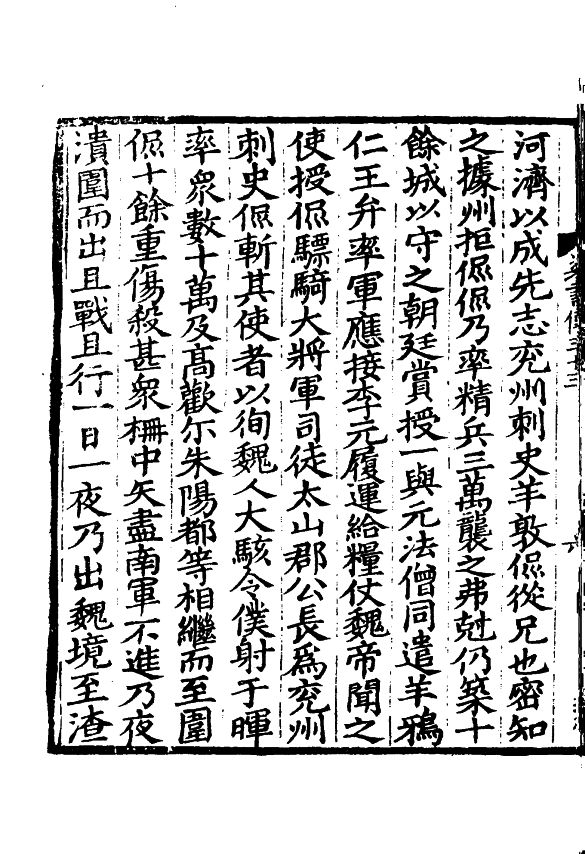 河濟以成先志兖州刺史羊敦侃從兄也密知
之據州拒侃侃乃率精兵三萬襲之弗尅仍築十
餘城以守之朝廷賞授一與元法僧同遣羊鴉
仁王弁率軍應接李元履運給糧仗魏帝聞之
使授侃驃騎大將軍司徒太山郡公長爲兖州
刺史侃斬其使者以徇魏人大駭令僕射于暉
率衆數十萬及髙歡尓朱陽都等相繼而至圍
侃十餘重傷殺甚衆柵中矢盡南軍不進乃夜
潰圍而出且戰且行一日一夜乃出魏境至渣